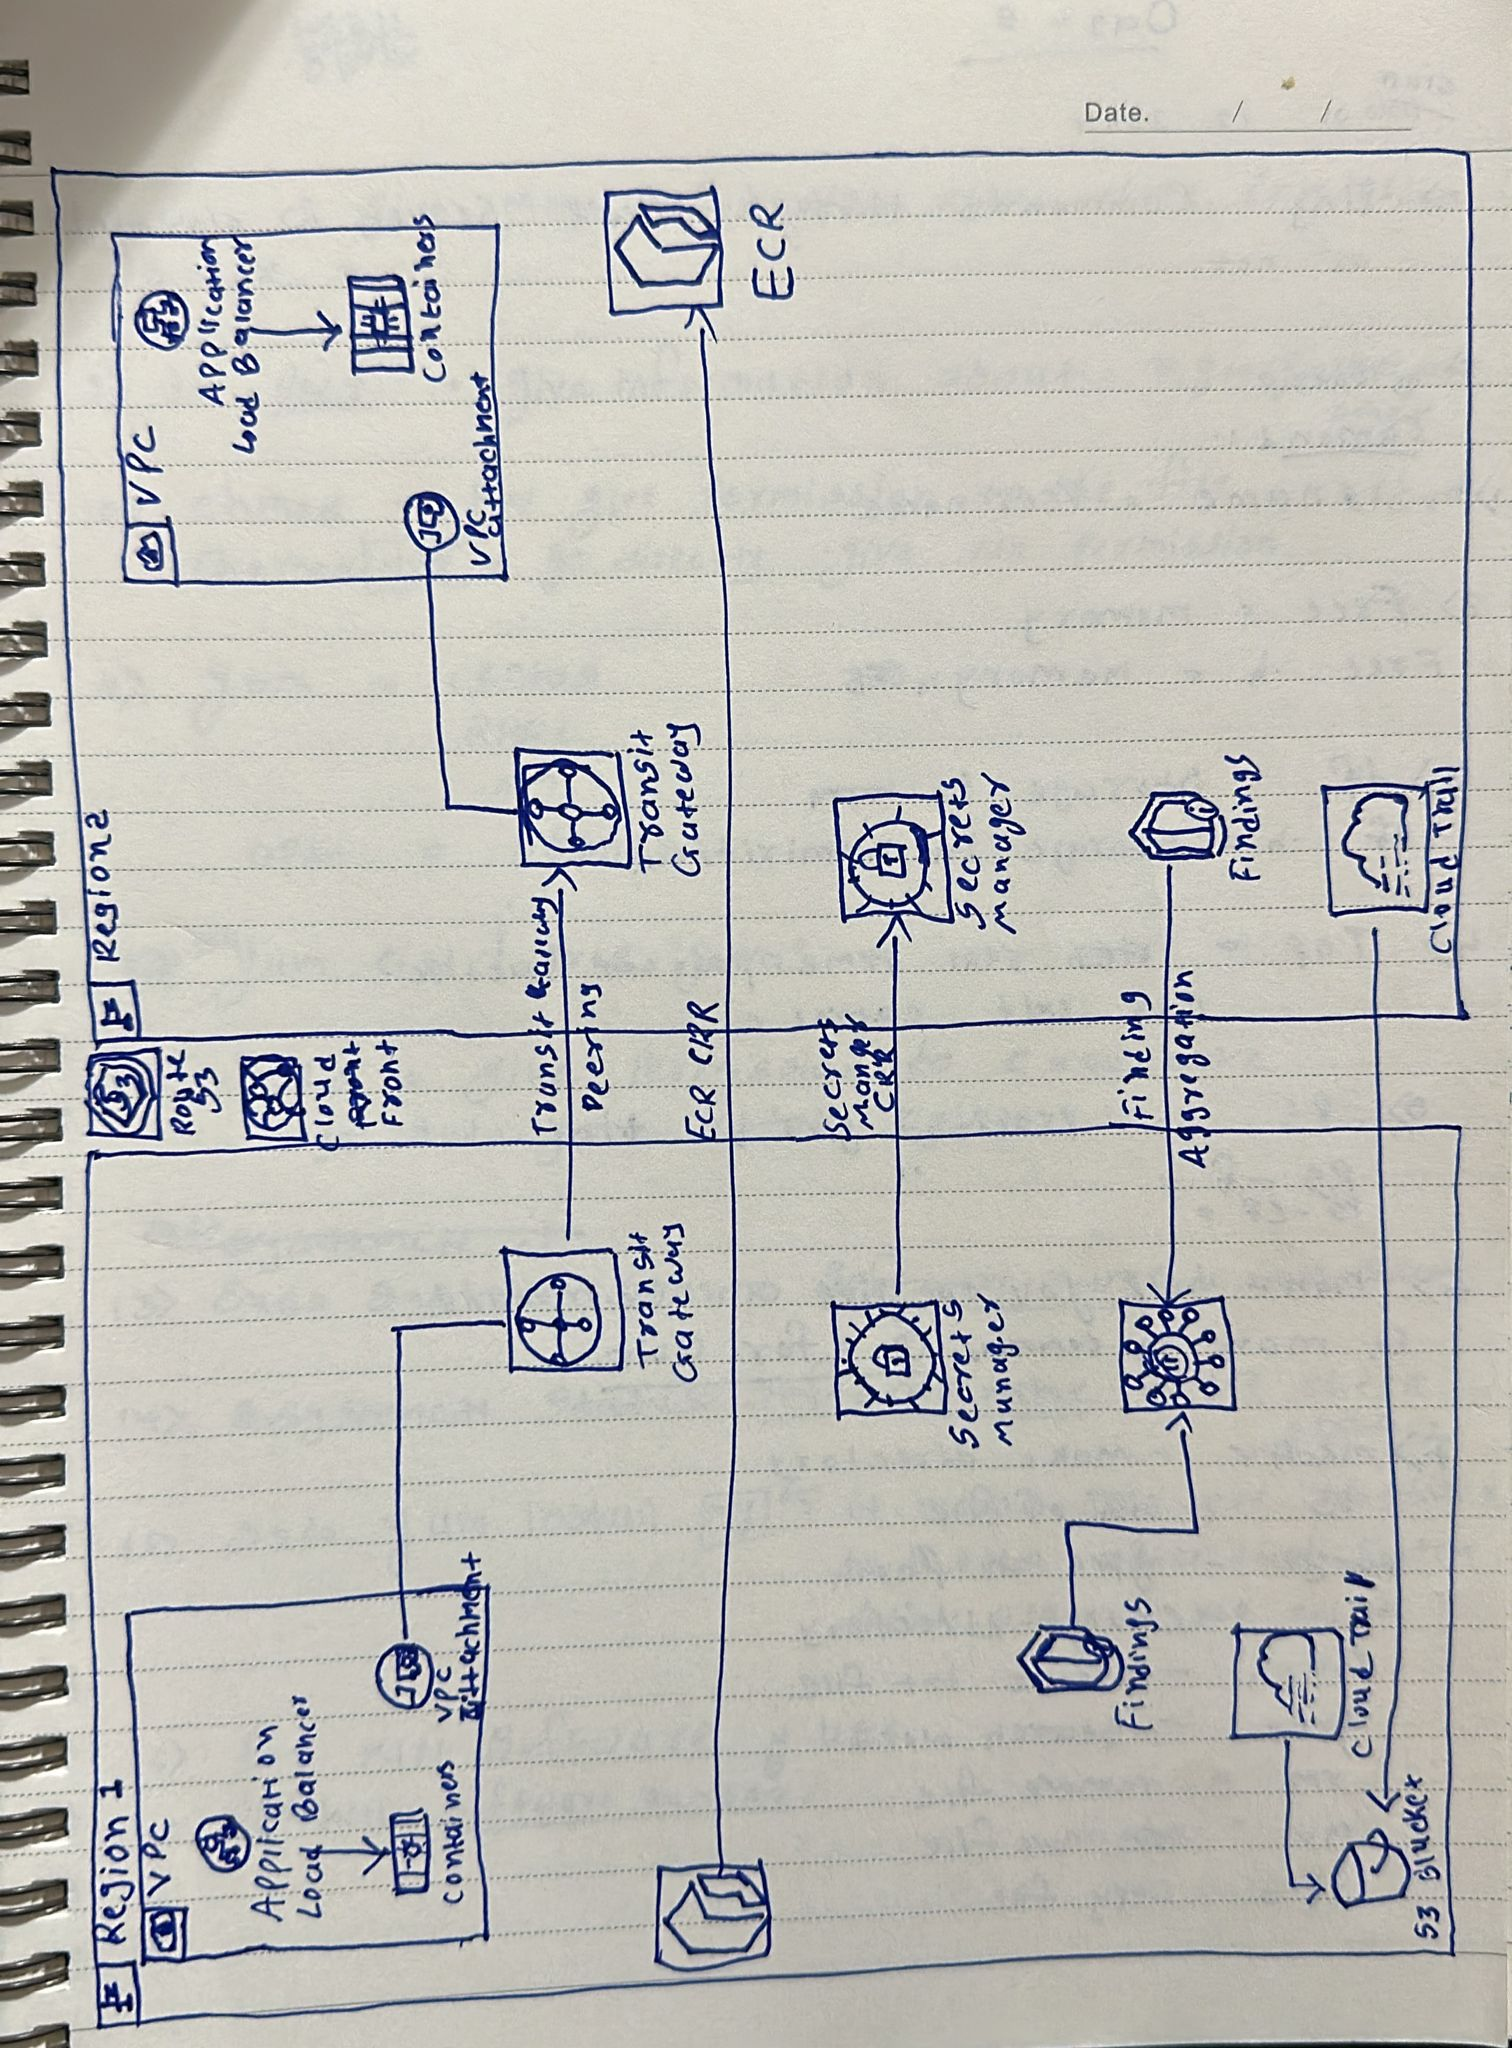 Date. / /
Region 1
VPC
Application
Load Balancer
Containers
VPC
Attachment
Transit
Gateway
Secrets
Manager
Findings
Cloud Trail
S3 Blucket
Route
53
Cloud
Front
Transit Gateway
Peering
ECR CRR
Secrets
Manger
CRR
Finding
Aggregation
Region 2
VPC
Application
Load Balancer
Containers
VPC
attachment
Transit
Gateway
ECR
Secrets
Manager
Findings
Cloud Trail